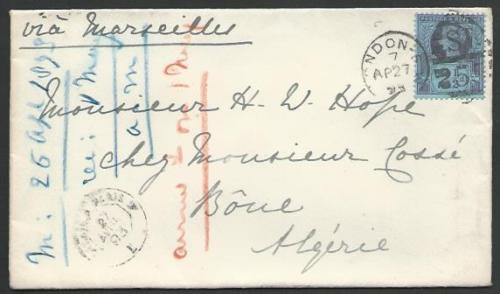 via Marseilles
LONDON
7
AP27
93
Monsieur H-W-Hope
chez Monsieur Cossé
Bône
Algérie
PARIS
m: 26 April 1893
rec: 1 May
a m
on 1